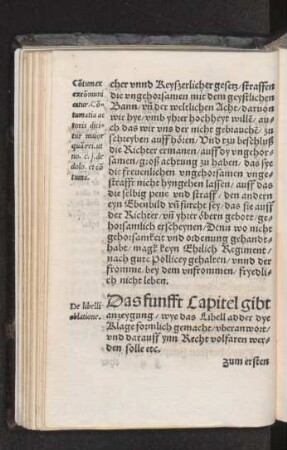 Cõtumex
excõmuni
cetur. Cõ-
tumatia ac
toris dici-
tur maior
quã rei. ut
no. c. j. de
dolo. et cõ
tuma.
cher vnnd Keyszerlicher gesetz, straffen
die vngehorsamen mit dem geystlichen
Bann, vñ der weltlichen Acht, daruon
wir hye, vmb yhier hochheyt willē, au-
ch das wir vns der nicht gebrauchē, zu
schreyben auff hören, Vnd tzu beschluß
die Richter ermanen, auff dy vngehor-
samen, groß achtung zu haben, das sye
die freuenlichen vngehorsamen vnge-
strafft nicht hyngehen lassen, auff das
die selbig pene vnd straff, den andern
eyn Ebenbild vñ furcht sey, das sie auff
der Richter, vñ yhier öbern gebott, ge-
horsamlich erscheynen, Denn wo nicht
gehorsamkeit vnd ordenung gehandt-
habt, magk keyn Ehrlich Regiment,
nach gutt Pollicey gehalten, vnnd der
fromme, bey dem vnfrommen, fryedli-
ch nicht leben.
De libelli
oblatione.
Das funfft Capitel gibt
anzeygung, wye das Libell adder dye
Klage formlich gemacht, vberanwort,
vnd darauff ynn Recht volfaren wer-
den solle etc.
zum ersten